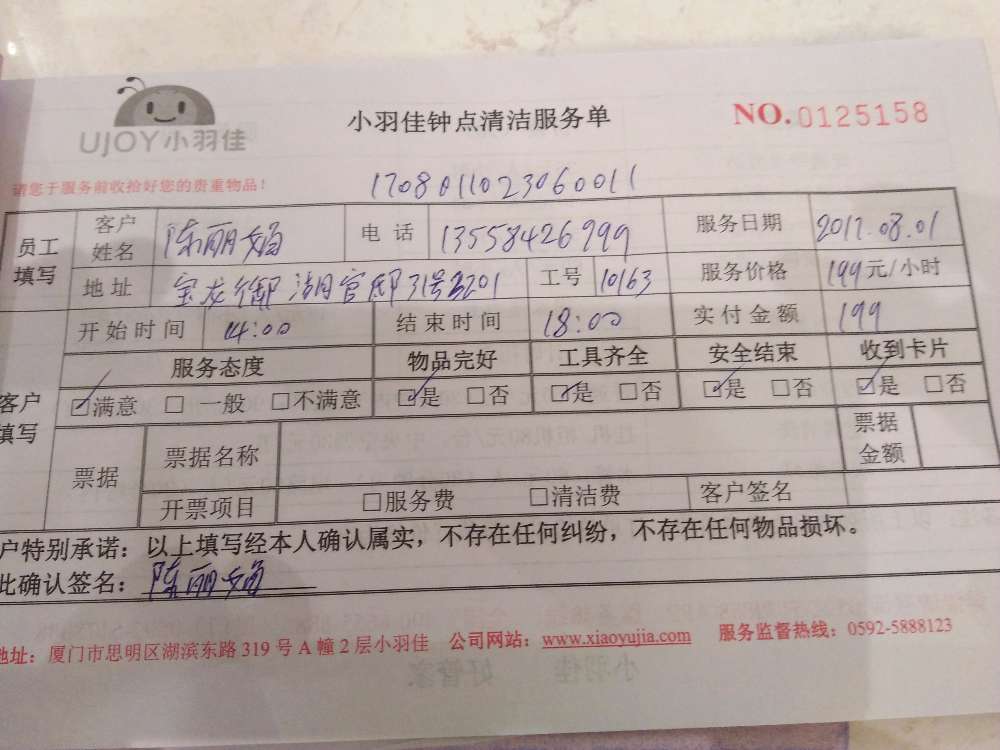 UJOY小羽佳
小羽佳钟点清洁服务单
NO.0125158
请您于服务前收拾好您的贵重物品！
1708011023060011
员工填写 客户姓名 陈丽娟 电话 13558426999 服务日期 2017.08.01
地址 宝龙御湖官邸31号3201 工号 10163 服务价格 199元/小时
开始时间 14:00 结束时间 18:00 实付金额 199
客户填写 服务态度 物品完好 工具齐全 安全结束 收到卡片
☑满意 □一般 □不满意 ☑是 □否 ☑是 □否 ☑是 □否 ☑是 □否
票据 票据名称 票据金额
开票项目 □服务费 □清洁费 客户签名
户特别承诺：以上填写经本人确认属实，不存在任何纠纷，不存在任何物品损坏。
此确认签名：陈丽娟
地址：厦门市思明区湖滨东路319号A幢2层小羽佳 公司网站：www.xiaoyujia.com 服务监督热线：0592-5888123